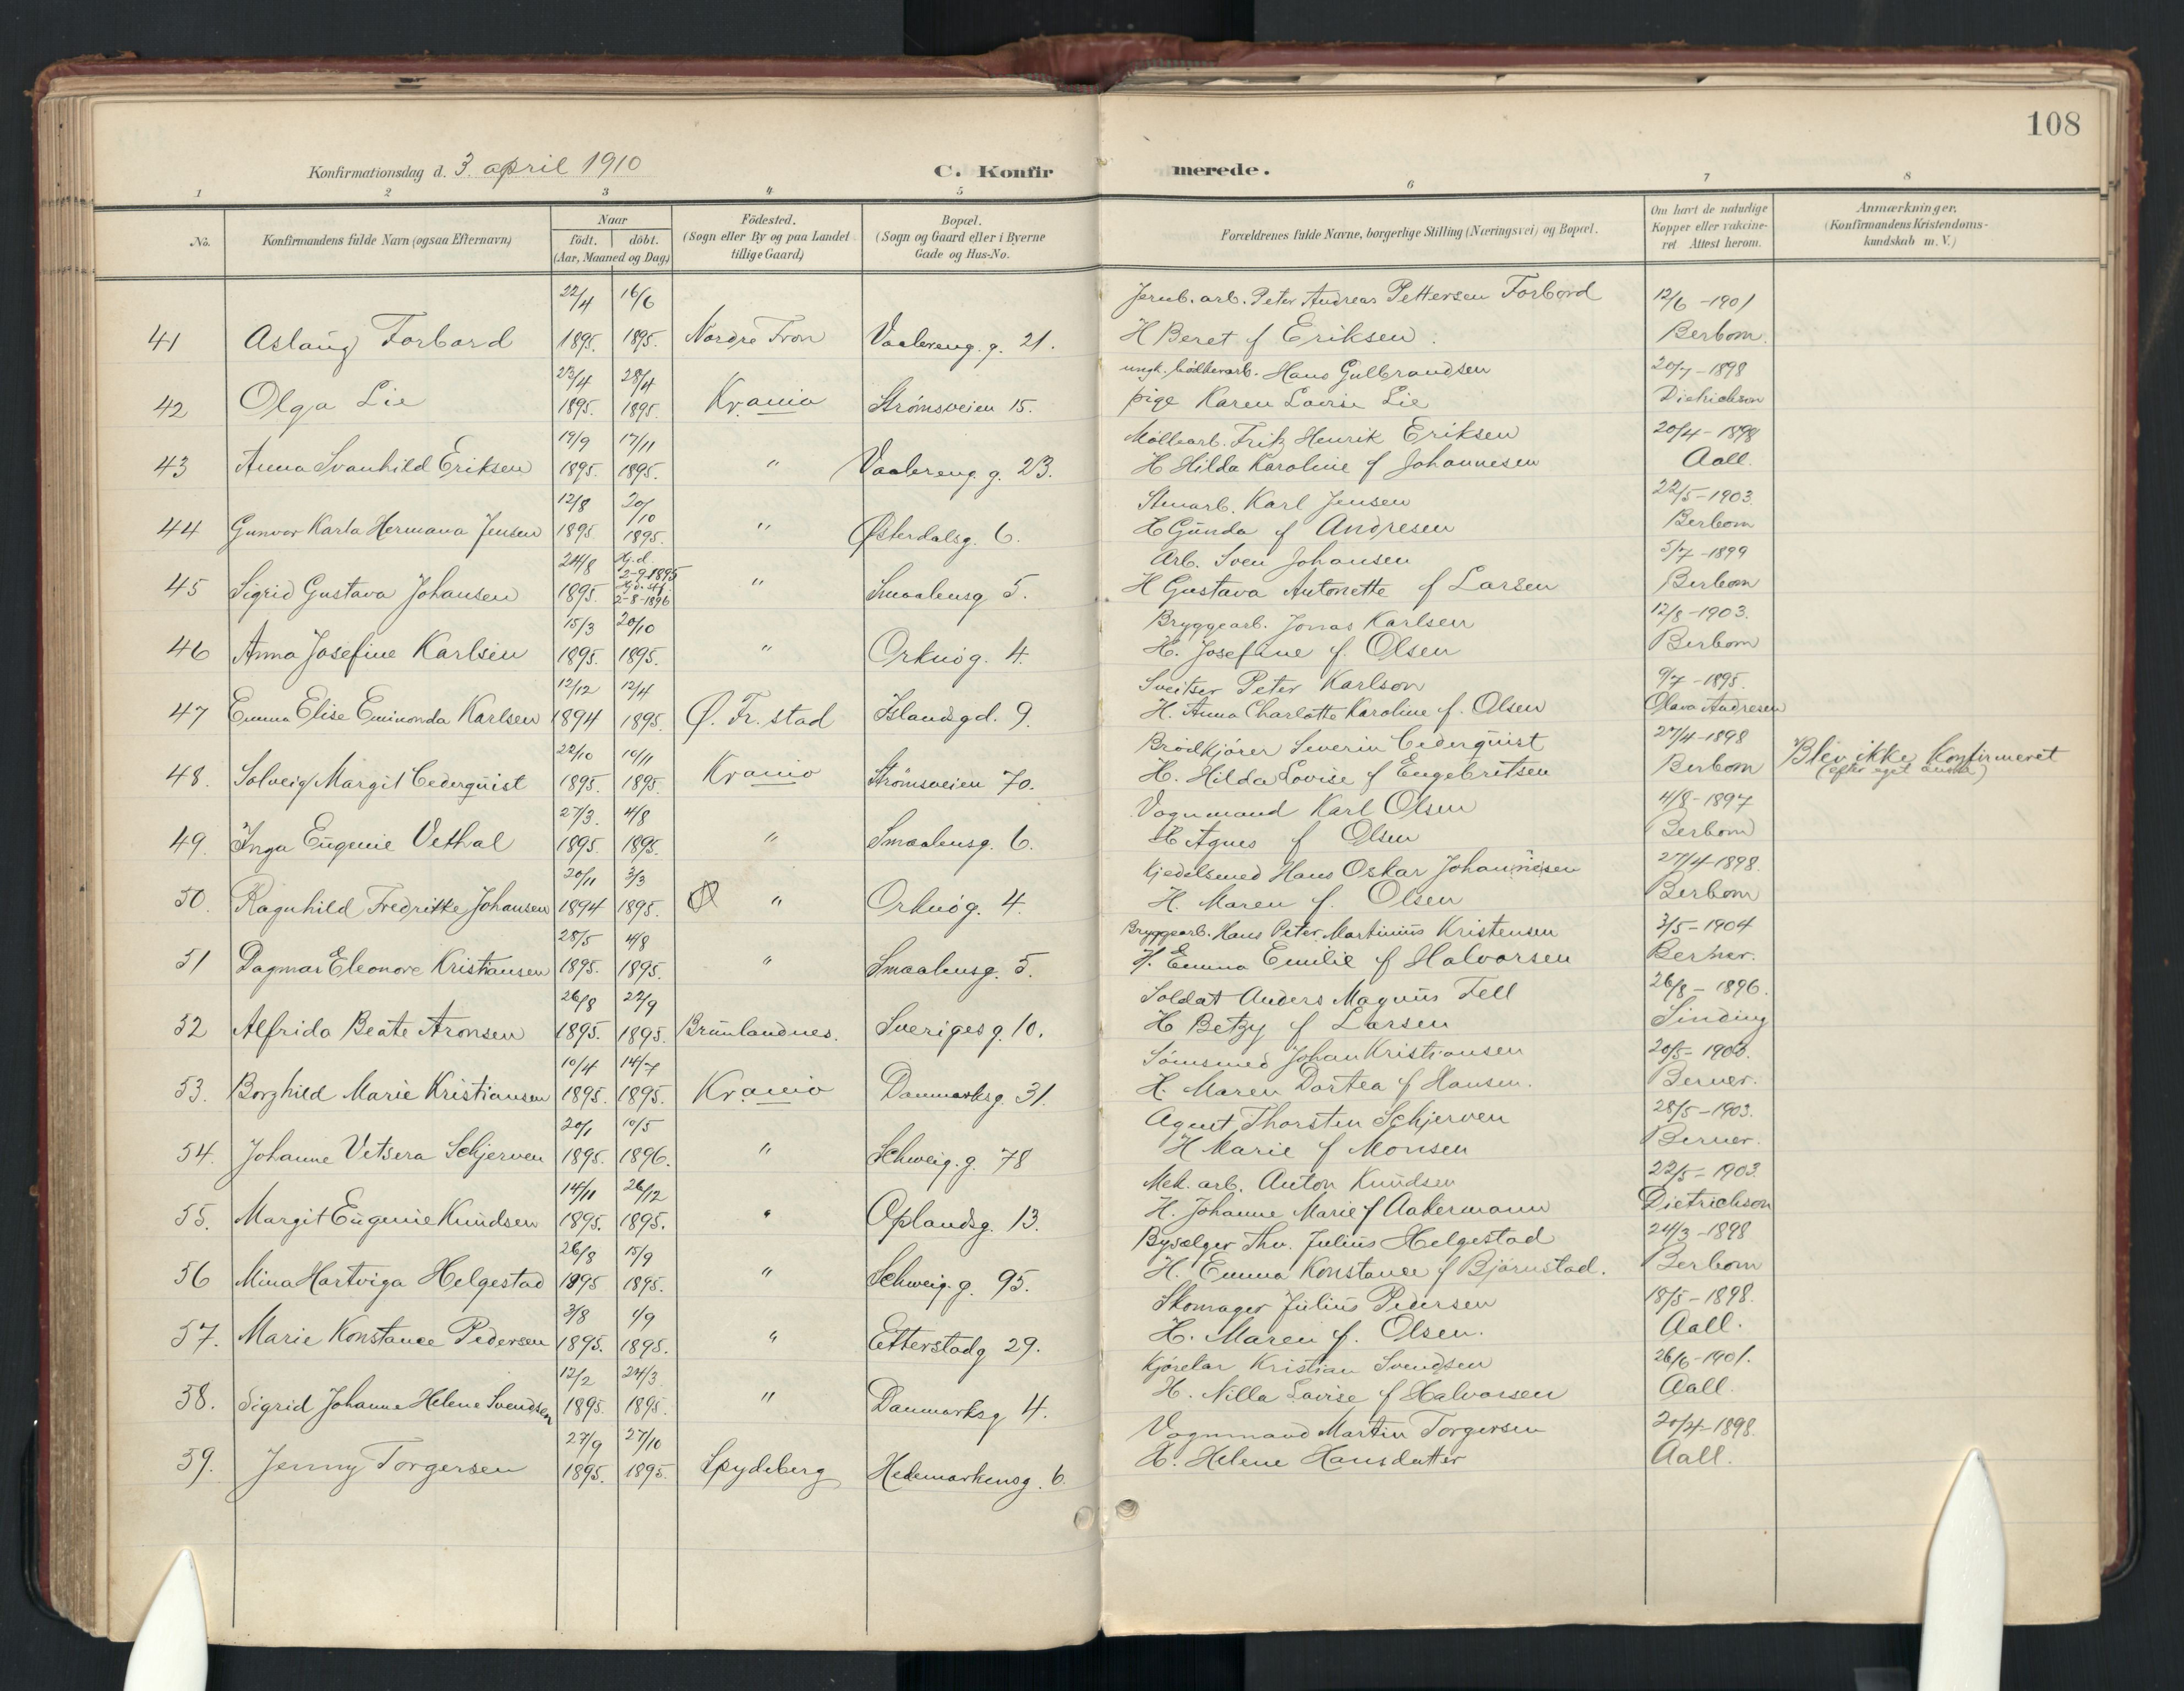 108
Konfirmationsdag d. 3. april 1910
C. Konfirmerede.
1 2 3 4 5 6 7 8
No.
Konfirmandens fulde Navn (ogsaa Efternavn)
Naar
födt. döbt.
(Aar, Maaned og Dag)
Födested.
(Sogn eller By og paa Landet
tillige Gaard)
Bopæl.
(Sogn og Gaard eller i Byerne
Gade og Hus-No.
Forældrenes fulde Navne, borgerlige Stilling (Næringsvei) og Bopæl.
Om havt de naturlige
Kopper eller vakcine-
ret Attest herom.
Anmærkninger.
(Konfirmandens Kristendoms-
kundskab m. V.)
22/4 16/6 Jernb. arb. Peter Andreas Pettersen Forbord 12/6 - 1901
41 Aslaug Forbord 1895. 1895. Nordre Fron Vaalereng. g. 21. H Beret f Eriksen. Berbom.
23/4 28/4 ungk. bødkerarb. Hans Gulbrandsen 20/7 - 1898
42 Olga Lie 1895. 1895. Kr.ania Strömsveien 15. pige Karen Lovise Lie Dietrichson
19/9 17/11 Möllearb. Fritz Henrik Eriksen 20/4 - 1898
43 Anna Svanhild Eriksen 1895. 1895. " Vaalereng. g. 23. H Hilda Karoline f Johannesen Aall.
12/8 20/10 Stenarb. Karl Jensen 22/5 - 1903.
44 Gunvor Karla Hermana Jensen 1895 1895. " Østerdalsg. 6. H Gunda f Andresen Berbom
24/8 Hj.d. 2-9-1895 Arb. Sven Johansen 5/7 - 1899
45 Sigrid Gustava Johansen 1895. Hj.d. stf. 2-8-1896 " Smaalensg 5. H Gustava Antonette f Larsen Berbom
15/3 20/10 Bryggearb. Jonas Karlsen 12/8 - 1903.
46 Anna Josefine Karlsen 1895. 1895. " Orknög. 4. H. Josefine f. Olsen Berbom
12/12 12/4 Sveitser Peter Karlson 9/7 - 1895.
47 Emma Elise Eminonda Karlsen 1894 1895. Ø. Fr. stad Islandsgd. 9. H. Anna Charlotte Karoline f. Olsen Olava Andresen
22/10 10/11 Brödkjörer Severin Cederquist 27/4 - 1898
48. Solveig Margit Cederquist 1895. 1895. Kr.ania Strömsveien 70. H. Hilda Lovise f Engebritsen Berbom Blev ikke konfirmeret
(efter eget ønske)
27/3. 4/8 Vognmand Karl Olsen 4/8 - 1897
49. Inga Eugenie Vethal 1895. 1895. " Smaalensg. 6. H Agnes f Olsen Berbom
20/11 3/3 Kjedelsmed Hans Oskar Johannesen 27/4 - 1898.
50. Ragnhild Fredrikke Johansen 1894 1895. " Orknög. 4. H. Maren f. Olsen Berbom
28/5 4/8 Bryggearb. Hans Peter Martinius Kristensen 3/5 - 1904
51 Dagmar Eleonore Kristiansen 1895. 1895. " Smaalensg. 5. H. Emma Emilie f Halvorsen Berner.
26/8 22/9 Soldat Anders Magnus Fell 26/8 - 1896.
52 Alfrida Beate Aronsen 1895. 1895. Brunlandnes. Sveriges g. 10. H Betzy f Larsen Sinding
10/4 14/7 Sömsmed Johan Kristiansen 20/5 - 1903.
53. Borghild Marie Kristiansen 1895. 1895. Kr.ania Danmarksg. 31. H. Maren Dortea f Hansen. Berner.
20/1 10/5 Agent Thorsten Schjerven 28/5 - 1903.
54. Johanne Vetsera Schjerven 1895. 1896. " Schweig. g. 78 H Marie f Monsen Berner.
14/11 26/12 Mek. arb. Anton Knudsen 22/5 - 1903.
55. Margit Eugenie Knudsen 1895. 1895. " Oplandsg. 13. H. Johanne Marie f Aakermann Dietrichson
26/8 15/9 Bysælger Thv. Julius Helgestad 24/3 - 1898
56 Mina Hartviga Helgestad 1895 1895. " Schweig. g. 95. H. Emma Konstance f Bjørnstad. Berbom
3/8 1/9 Skomager Julius Pedersen 18/5 - 1898.
57. Marie Konstance Pedersen 1895. 1895. " Etterstadg 29. H. Maren f. Olsen. Aall.
12/2 24/3 Kjörekar Kristian Svendsen 26/6 - 1901.
58. Sigrid Johanne Helene Svendsen 1895. 1895. " Danmarksg 4. H. Nilla Lovise f Halvorsen Aall.
27/9 27/10 Vognmand Martin Torgersen 20/4 - 1898.
59. Jenny Torgersen 1895. 1895. Spydeberg Hedemarkensg. 6. H. Helene Hansdatter Aall.